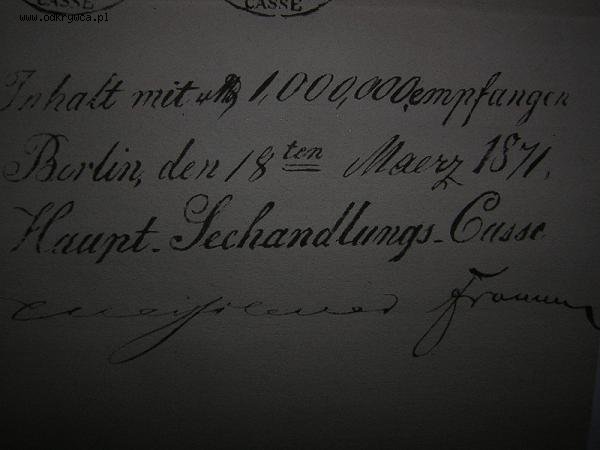 www.odkrywca.pl
CASSE CASSE
Inhalt mit 1,000,000, empfangen
Berlin, den 18ten Maerz 1871.
Haupt-Seehandlungs-Casse